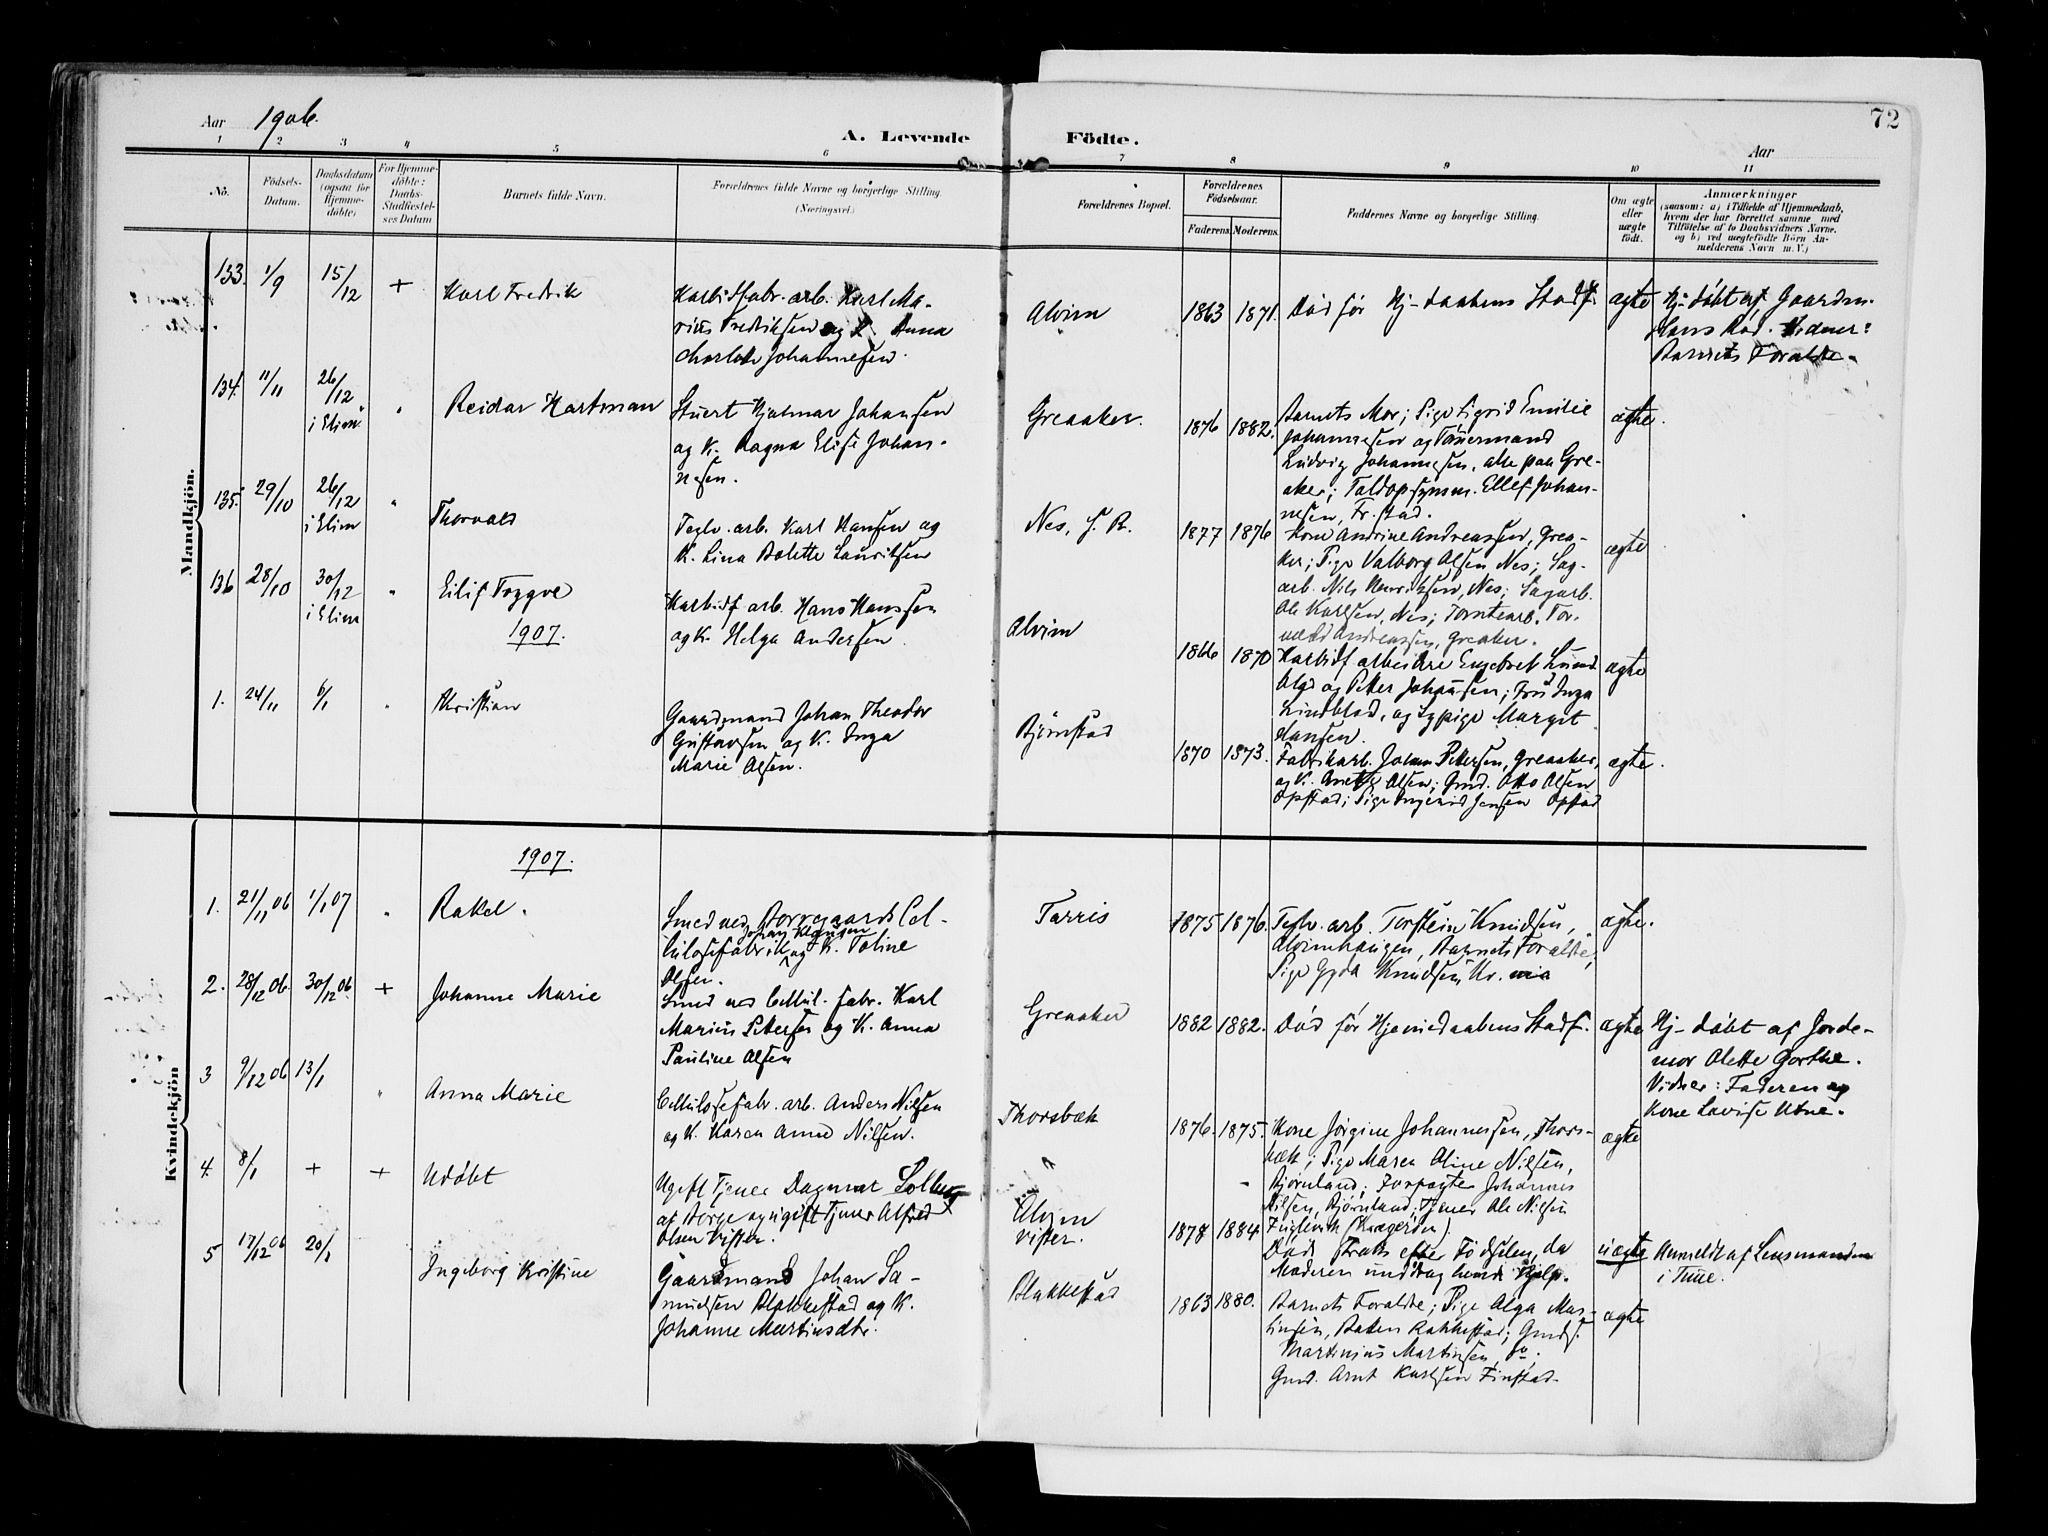 Aar 1906.
A. Levende Födte.
72
Aar
1 2 3 4 5 6 7 8 9 10 11
No.
Födsels-
Datum.
Daabsdatum
(ogsaa for
Hjemme-
döbte)
For Hjemme-
döbte:
Daabs-
Stadfestel-
ses Datum
Barnets fulde Navn.
Forældrenes fulde Navne og borgerlige Stilling.
(Næringsvei.)
Forældrenes Bopæl.
Forældrenes
Födselsaar.
Faderens. Moderens.
Faddernes Navne og borgerlige Stilling.
Om ægte
eller
uægte
födt.
Anmærkninger
(saasom: a) i Tilfælde af Hjemmedaab,
hvem der har forrettet samme med
Tilföielse af to Daabsvidners Navne,
og b) ved uægtefödte Börn An-
melderens Navn m. V.)
Mandkjön.
133. 1/9 15/12 + Karl Fredrik
Karbidfabr. arb. Karl Ma-
rius Fredriksen og K. Anna
Charlotte Johannesen.
Alvim 1863 1871. Död för Hj-daabens Stadf. ægte
Hj-döbt af Gaardm.
Hans Rød. Vidner:
Barnets Forældre.
134. 11/11 26/12 i Elim " Reidar Hartman
Stuert Hjalmar Johansen
og K. Ragna Elise Johan-
nesen.
Greaaker. 1876 1882.
Barnets Mor; Pige Sigrid Emilie
Johannesen og Tömermand
Ludvig Johannesen, alle paa Gre-
aker; Toldopsynsm. Ellef Johan-
nesen, Fr.stad.
ægte.
135. 29/10 26/12 i Elim " Thorvald
Teglv. arb. Karl Hansen og
K. Lina Bolette Lauritsen
Nes, S. B. 1877 1876
Kone Andrine Andreassen, Grea-
ker; Pige Valborg Olsen Nes; Sag-
arb. Nils Henriksen, Nes; Sagarb.
Ole Karlsen, Nes; Tomtearb. Tor-
vald Andreassen, Greaker.
ægte
136 28/10 30/12 i Elim " Eilif Trygve
Karbidf. arb. Hans Hanssen
og K. Helga Andersen
Alvim 1866 1870
Karbidf. arbeidere Engebret Lund
og Peter Johansen; Fru Inga
Lindblad, og Sypige Margit
Hansen.
ægte
1907.
1. 24/11 6/1 " Kristian
Gaardmand Johan Theodor
Gustavsen og K. Inga
Marie Olsen.
Bjørnstad 1870 1873.
Fabrikarb. Johan Petersen, Greaaker,
og K. Anette Olsen; Gmd. Otto Olsen
Opstad; Pige Ingerid Jensen Opstad
ægte.
Kvindekjön
1907.
1. 21/11 06 1/1 07 " Rakel.
Smed ved Borregaards Cel-
lulosefabrik Johan Klausen og K. Toline
Olsen.
Tarris 1875 1876.
Teglv. arb. Torstein Knudsen,
Alvimhaugen, Barnets Forældre;
Pige Gyda Knudsen Kr.
ægte.
2. 28/12 06. 30/12 06. + Johanne Marie
Smed ved Cellul. fabr. Karl
Marius Petersen og K. Anna
Pauline Olsen
Greaaker 1882 1882. Död för Hjemmedaabens Stadf. ægte
Hj-döbt af Jorde-
mor Olette Gorthe.
Vidner: Faderen og
Kone Lovise Utne.
3 9/12 06 13/1 " Anna Marie
Cellulosefabr. arb. Anders Nilsen
og K. Karen Anna Nilsen.
Thorsbæk 1876. 1875.
Kone Jørgine Johannessen, Thors-
bæk; Pige Maren Oline Nilsen,
Bjørnland; Forpagter Johannes
Nilsen, Bjørnland; Tjener Ole Nilsen
Fuglevik
ægte
4 8/1 + + Udöbt
Ugift Tjener Dagmar Solberg
af Borge og ugift Tjener Alfred
Olsen Vister.
Alvim
Vister. 1878 1884
Död straks efter Födselen, da
Moderen unddrog hende Hjælp.
uægte
Anmeldt af Lensmanden
i Tune.
5 17/12 06 20/1 Ingeborg Kristine
Gaardmand Johan Sa-
muelsen Blakkestad og K.
Johanne Martinsdtr.
Blakkestad 1863 1880.
Barnets Forældre; Pige Olga Mar-
tinsen, Rakkestad; Gmds.
Martinius Martinsen,
Gmd. Arnt Karlsen Finstad.
ægte